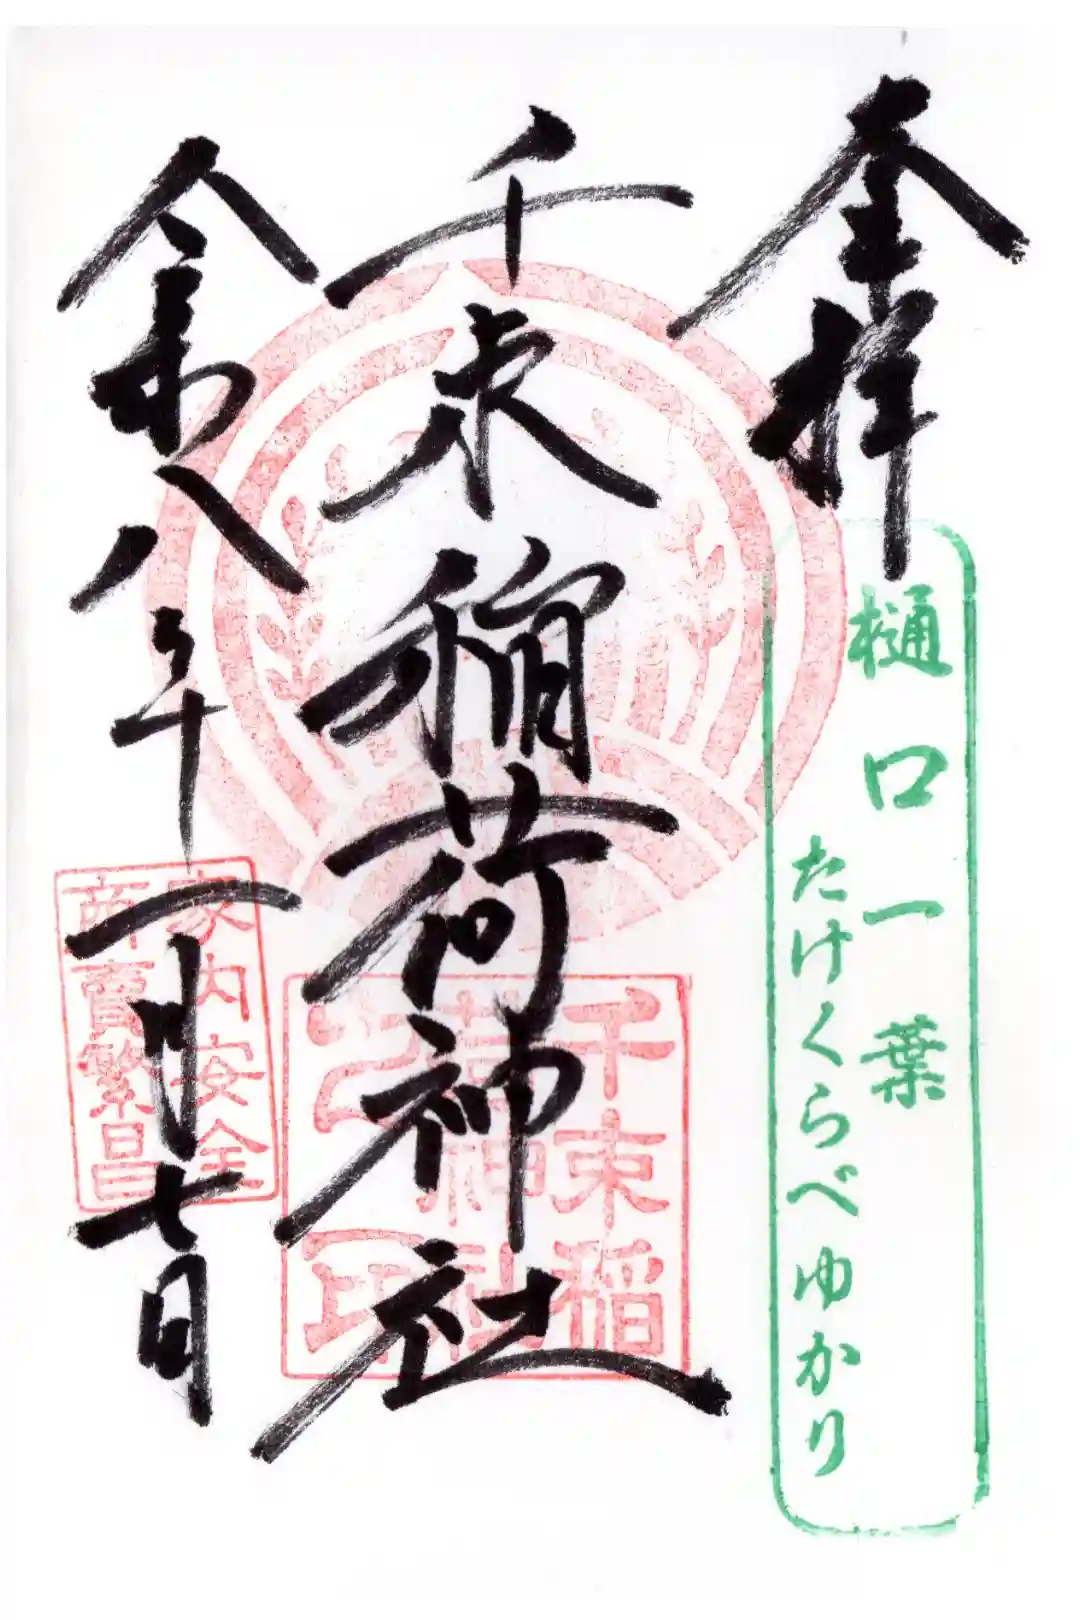 奉拝
樋口一葉
たけくらべゆかり
千束稲荷神社
千束稲
荷神社
之印
令和八年一月七日
家内安全
商賣繁昌